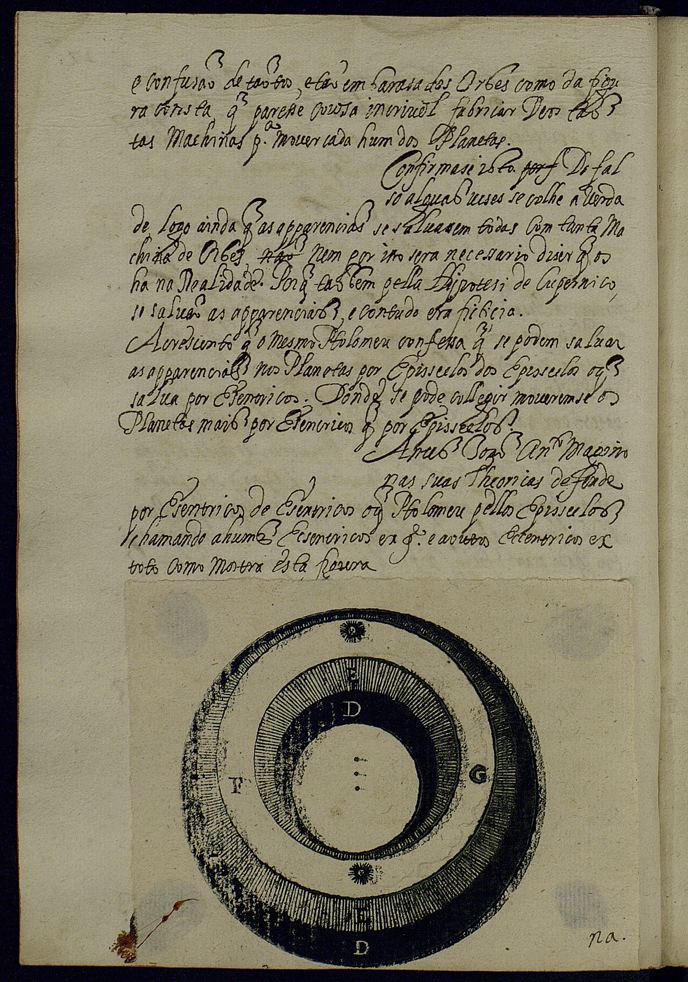 e confusaõ de taõtos, e taõ embarasados Orbes como da figu
ra consta q̃ pareçe cousa incriuel fabricar Deos
tas Machinas p.ª mouer cada hum dos Planetas.
Confirmase isto De fal
so algũas ueses se colhe a Uerda
de logo ainda q̃ as apparencias se saluasem todas com tanta Ma
china de Orbes nem por isso sera necesario diser q̃ os
ha na Realidade. Porq̃ taõbem pella Hipotesi de Cupernico,
se saluaõ as apparencias, e contudo era ficticia.
Acresçento q̃ o mesmo Ptolomeu confessa q̃ se podem saluar
as apparencias nos Planetas por Episcelos dos Episcelos oq̃
salua por Esentricos. Donde se pode collegir moueremse os
Planetas mais por Esentricos q̃ por Episcelos.
An.º Magino
nas suas Theoricas defende
por Esentricos de Esentricos oq̃ Ptolomeu pellos Episcelos
chamando a huns Ecsentricos ex p. e a outros Ecentricos ex
toto como mostra esta figura
E
D
F
G
E
D
na.